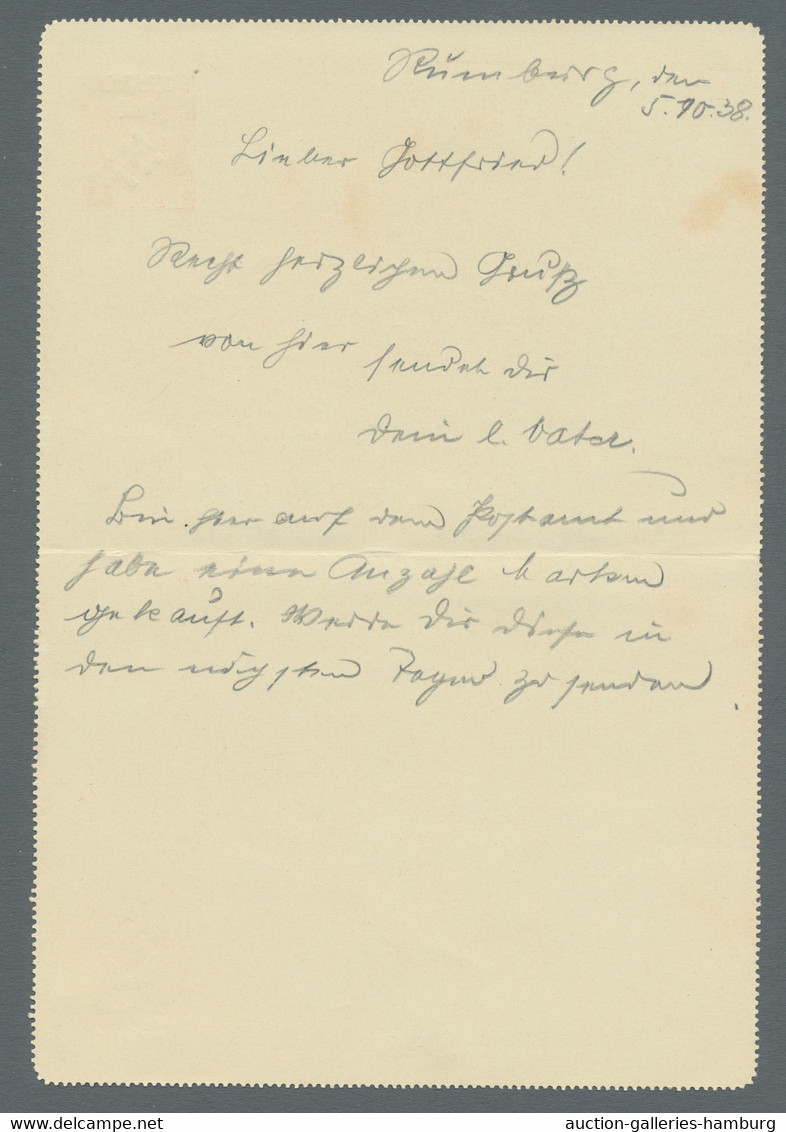 Rumburg, den
5.10.38.
Lieber Gottfried!
Recht herzlichen Gruß
von hier sendet dir
dein l. Vater.
Bin hier auf dem Postamt und
habe eine Anzahl Marken
gekauft. Werde dir diese in
den nächsten Tagen zusenden.
auction-galleries-hamburg